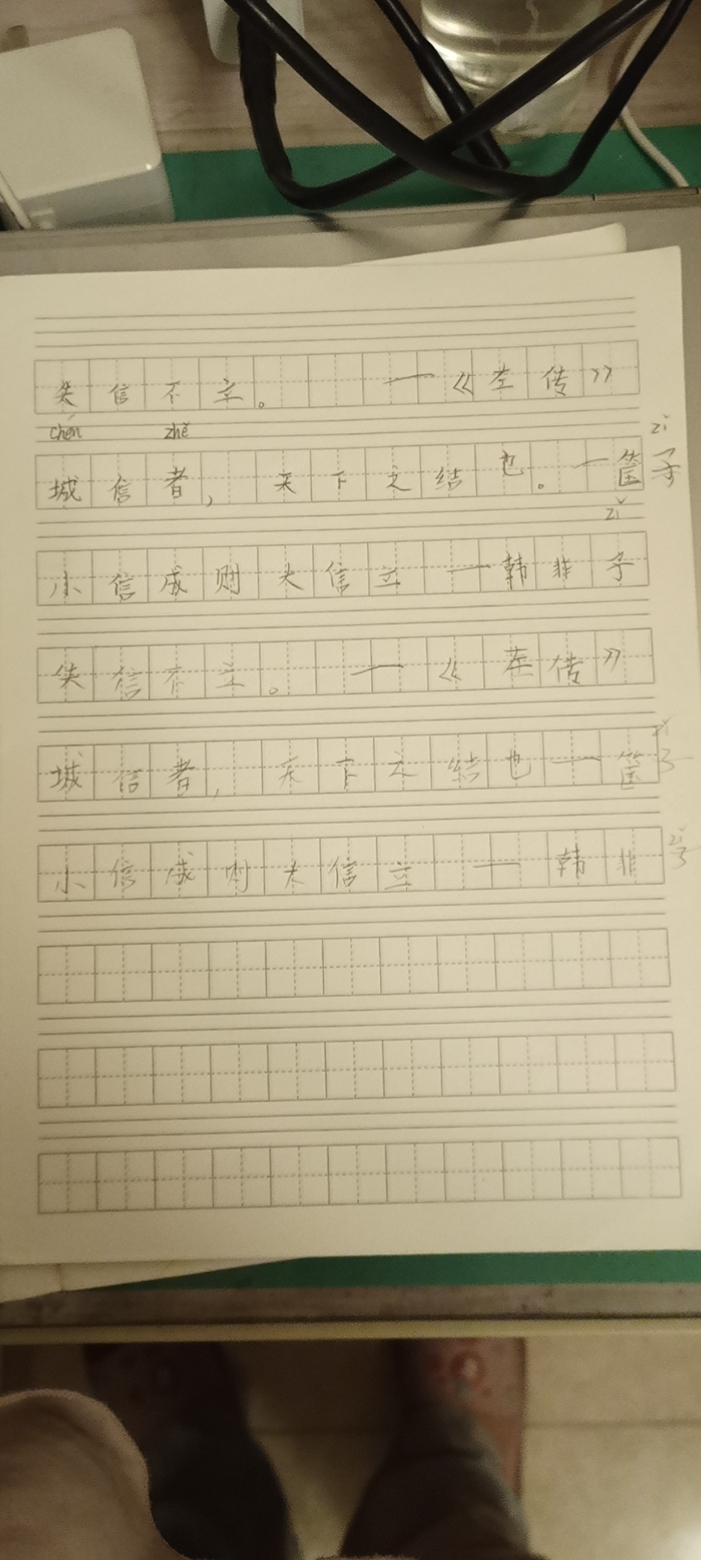 失信不立。 —《左传》
chén zhě zǐ
城信者, 天下之结也。—管子
zǐ
小信成则大信立 —韩非子
失信不立。 —《左传》
zǐ
城信者, 天下之结也—管子
zǐ
小信成则大信立 —韩非子